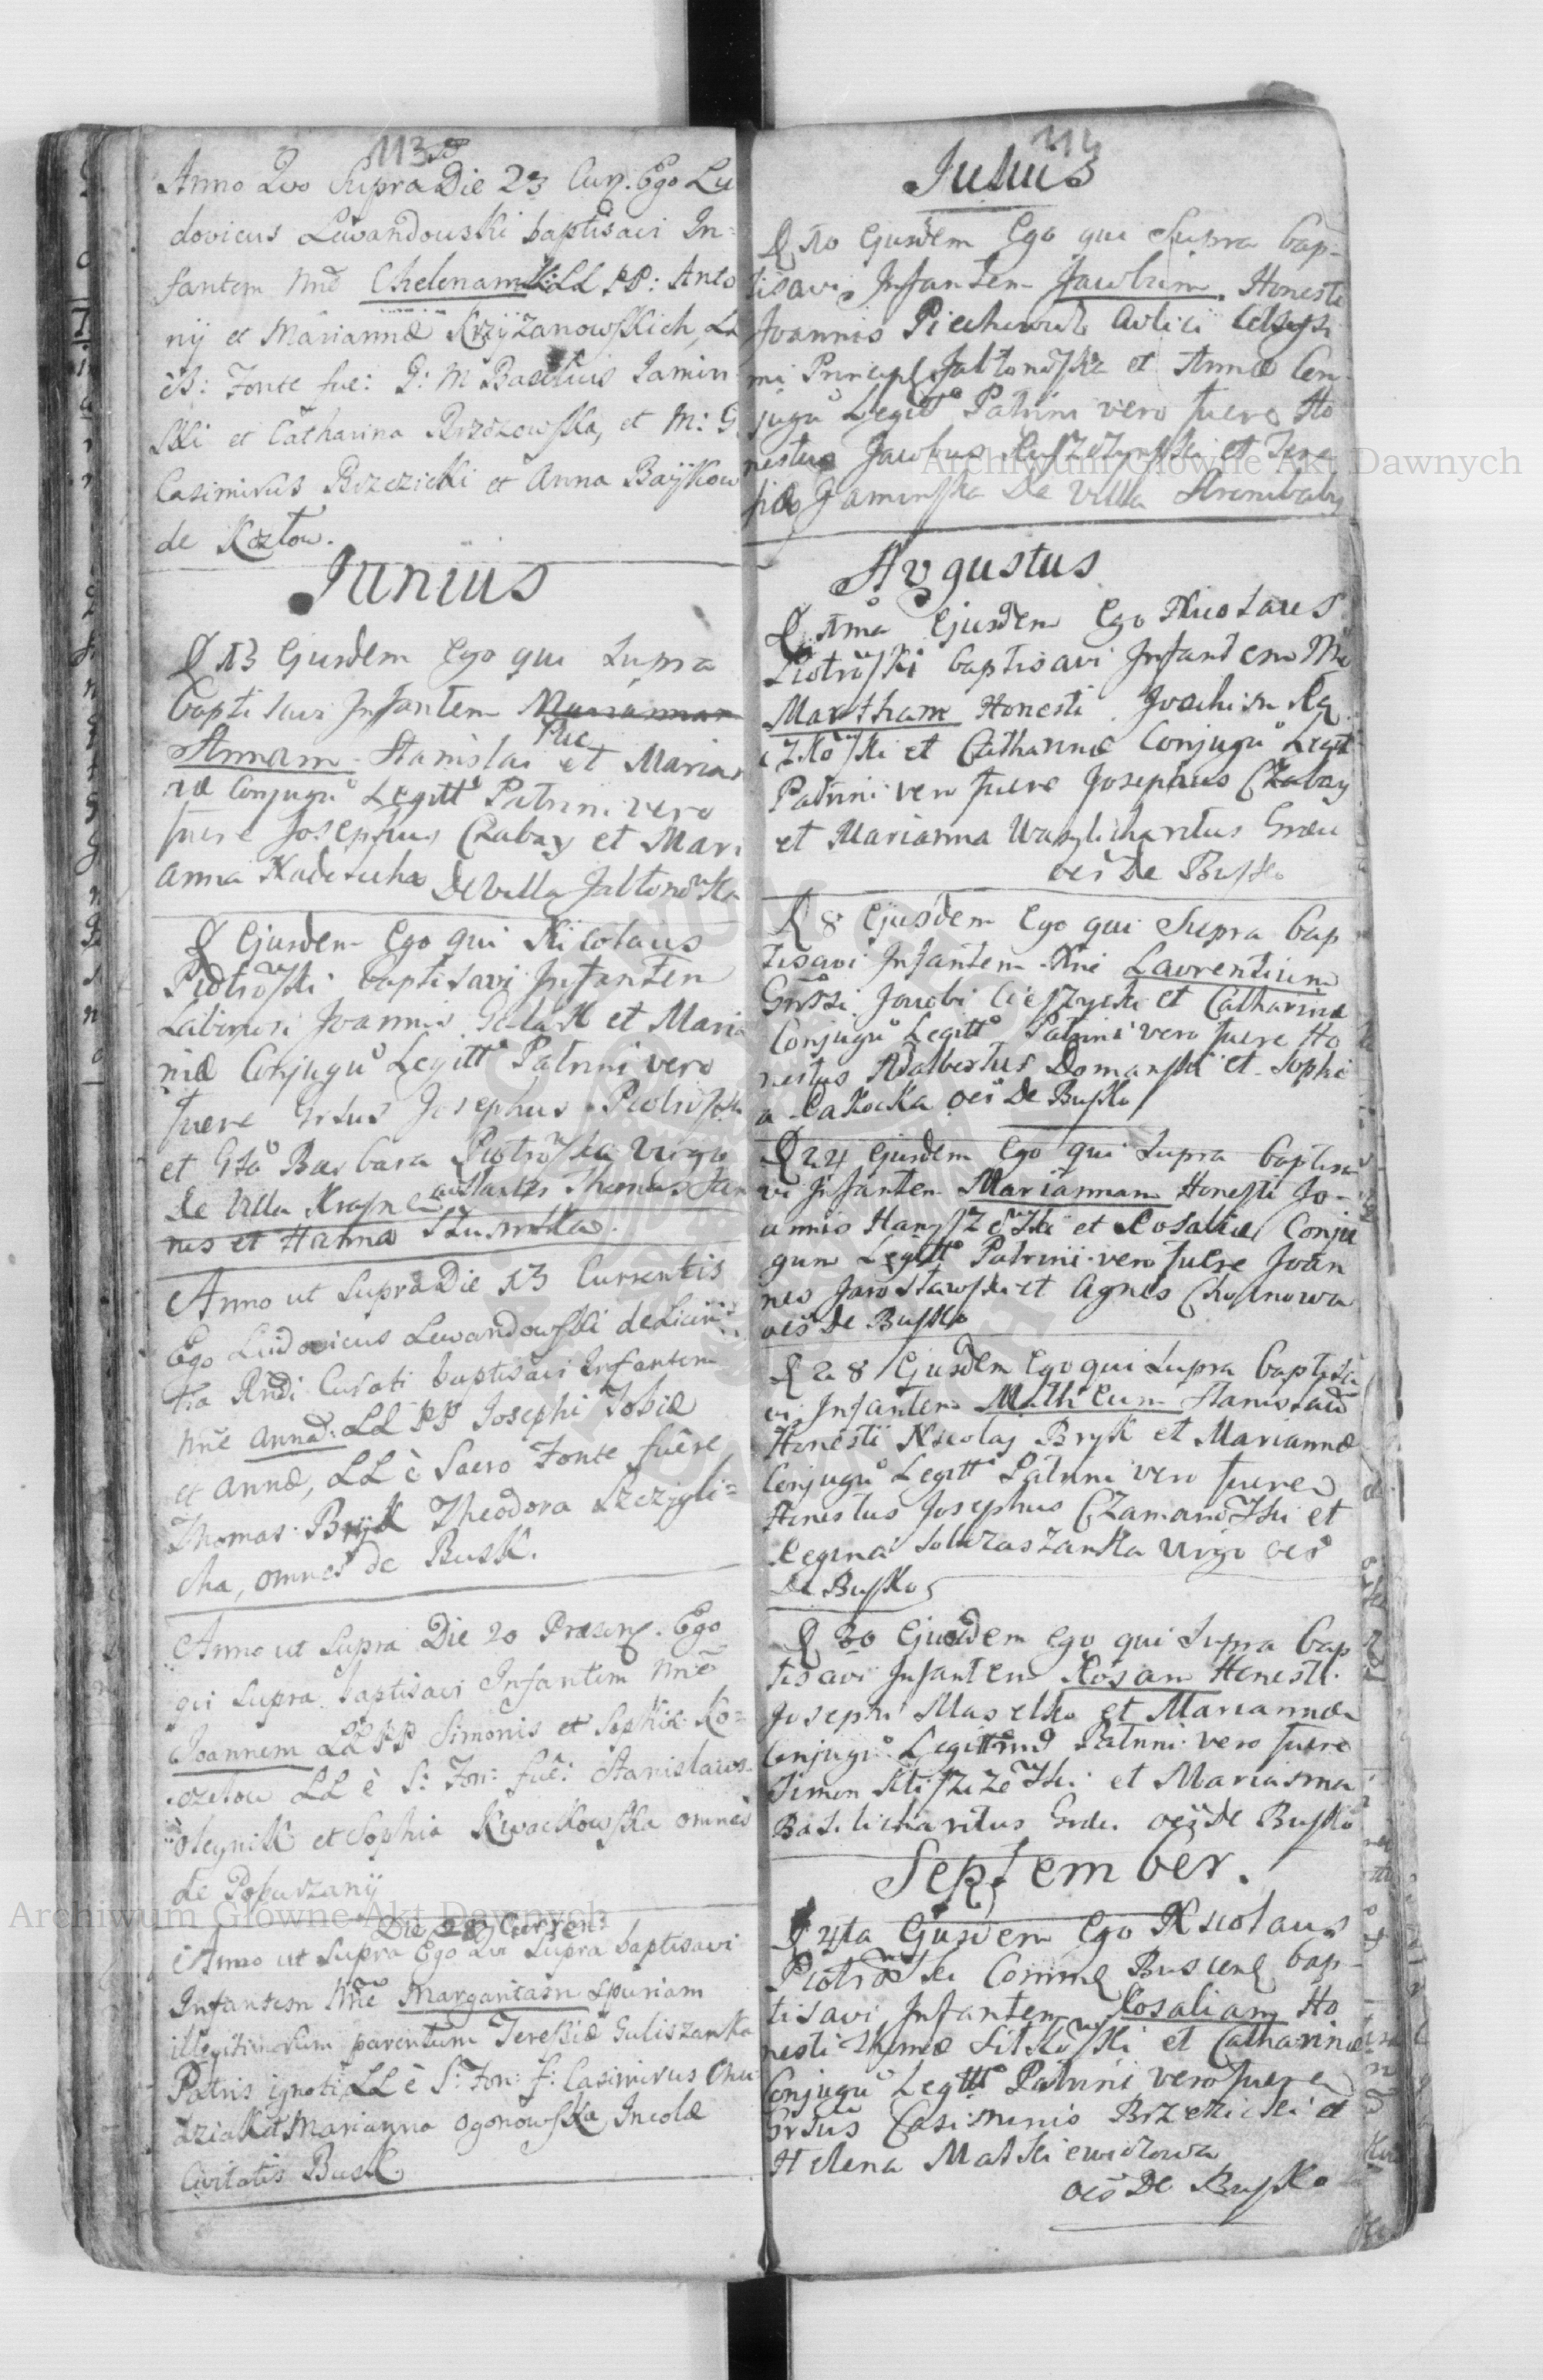 113
Anno Quo Supra Die 23 Curr. Ego Lu
dovicus Lewandouski baptisavi In=
fantem nnē Chelenam LL PP: Anto
nij et Mariannæ Krzÿzanowskich, LL
èS: Fonte fue: G: M Basilius Jamin
ski et Catharina Rzszowska, et M: G
Casimirus Brzezicki et Anna Baÿkow
de Kozłow.
Junius
D 13 Ejusdem Ego qui Supra
baptisavi Infantem Mariannam
Puc
Annam Stanislai et Marian
næ Conjugū Legitt Patrini vero
fuere Josephus Czabay et Mari
anna Nadesucha De Villa Jabłonowka
D Ejusdem Ego qui Nicolaus
Piotrowski baptisavi Infantem
Labiriosi Joannis Gałak et Maria
næ Conjugū Legitt Patrini vero
fuere Grsus Josephus Piotrowski
et Gsa Barbara Piotrowska Virgo
de Villa Krasne assistantes Thomas Jan
nes et Hanna
Anno ut Supra Die 13 Currentis
Ego Ludovicus Lewandowski de Licen
tia Rndi Curati baptisavi Infantem
nnē Annā: LL PP Josephi Tobiæ
et Annæ, LL è Sacro Fonte fuêre
Thomas Bryk Theodora Szczÿgli=
cha, omnes de Busk.
Anno ut Supra Die 20 Præsen. Ego
qui Supra baptisavi Infantem nnē
Joannem LL PP Simonis et Sophiæ Ko=
cziłow LL è S: Fon: fuê: Stanislaus
Oleynik et Sophia Kwackowska omnes
de Poburzanÿ
Die 28 Curren:
Anno ut Supra Ego Qui Supra baptisavi
Infantem Nnē Margaritam spuriam
illegitimorum parentum Teressiæ Guliszanka
Patris ignoti LL è S: Fon: f: Casimirus Chu
dziak et Marianna Ogonowska, Incolæ
Civitatis Busk
114
Julius
D 10 Ejusdem Ego qui Supra bap-
tisavi Infantem Jacobum Honesti
Joannis Piechowicz Avlici Celsissi
mi Princip Jabłonowski et Annæ Con
jugū Legitt Patrini vero fuere Ho
nestus Jacobus et Tere
sia Jaminska De Villa Stronibaby
Avgustus
D 1ma Ejusdem Ego Nicolaus
Piotrowski baptisavi Infantem Nnē
Martham Honesti Joachim Ra
czkowski et Catharinæ Conjugū Legitt
Patrini vero fuere Josephus Czabay
et Marianna Wasylicha ritus Græci
oēs De Busko
D 8 Ejusdem Ego qui Supra bap
tisavi Infantem Nnē Lavrentium
Grssi Jacobi Cieszycki et Catharinæ
Conjugū Legitt Patrini vero fuere Ho
nestus Adalbertus Domanski et Sophi
a Cakocka oēs De Busko
D 24 Ejusdem Ego qui Supra baptisa
vi Infantem Mariannam Honesti Jo-
annis Hanyszewski et Rosaliæ Conju
gum Legitt Patrini vero fuere Joan
nes Jarosławski et Agnes Chojnowa
oēs De Busko
D 28 Ejusdem Ego qui Supra baptisa
vi Infantem Matheum Stanislaū
Honesti Nicolaj Bryk et Mariannæ
Conjugū Legitt Patrini vero fuere
Honestus Josephus Czamanowski et
Regina Virgo oēs
De Busko
D 30 Ejusdem Ego qui Supra bap
tisavi Infantem Rosam Honesti
Josephi Maselko et Mariannæ
Conjugū Legittmo Patrini vero fuere
Simon et Marianna
Basilicha ritus Grci oēs De Busko
September.
D 4ta Ejusdem Ego Nicolaus
Piotrowski Comme Buscens bap-
tisavi Infantem Rosaliam Ho
nesti Thomæ Sitkowski et Catharinæ
Conjugū Legitt Patrini vero fuere
Grsus Casimirus Brzezicki et
Helena Matskiewiczowa
oēs De Busko
Archiwum Główne Akt Dawnych
Archiwum Główne Akt Dawnych